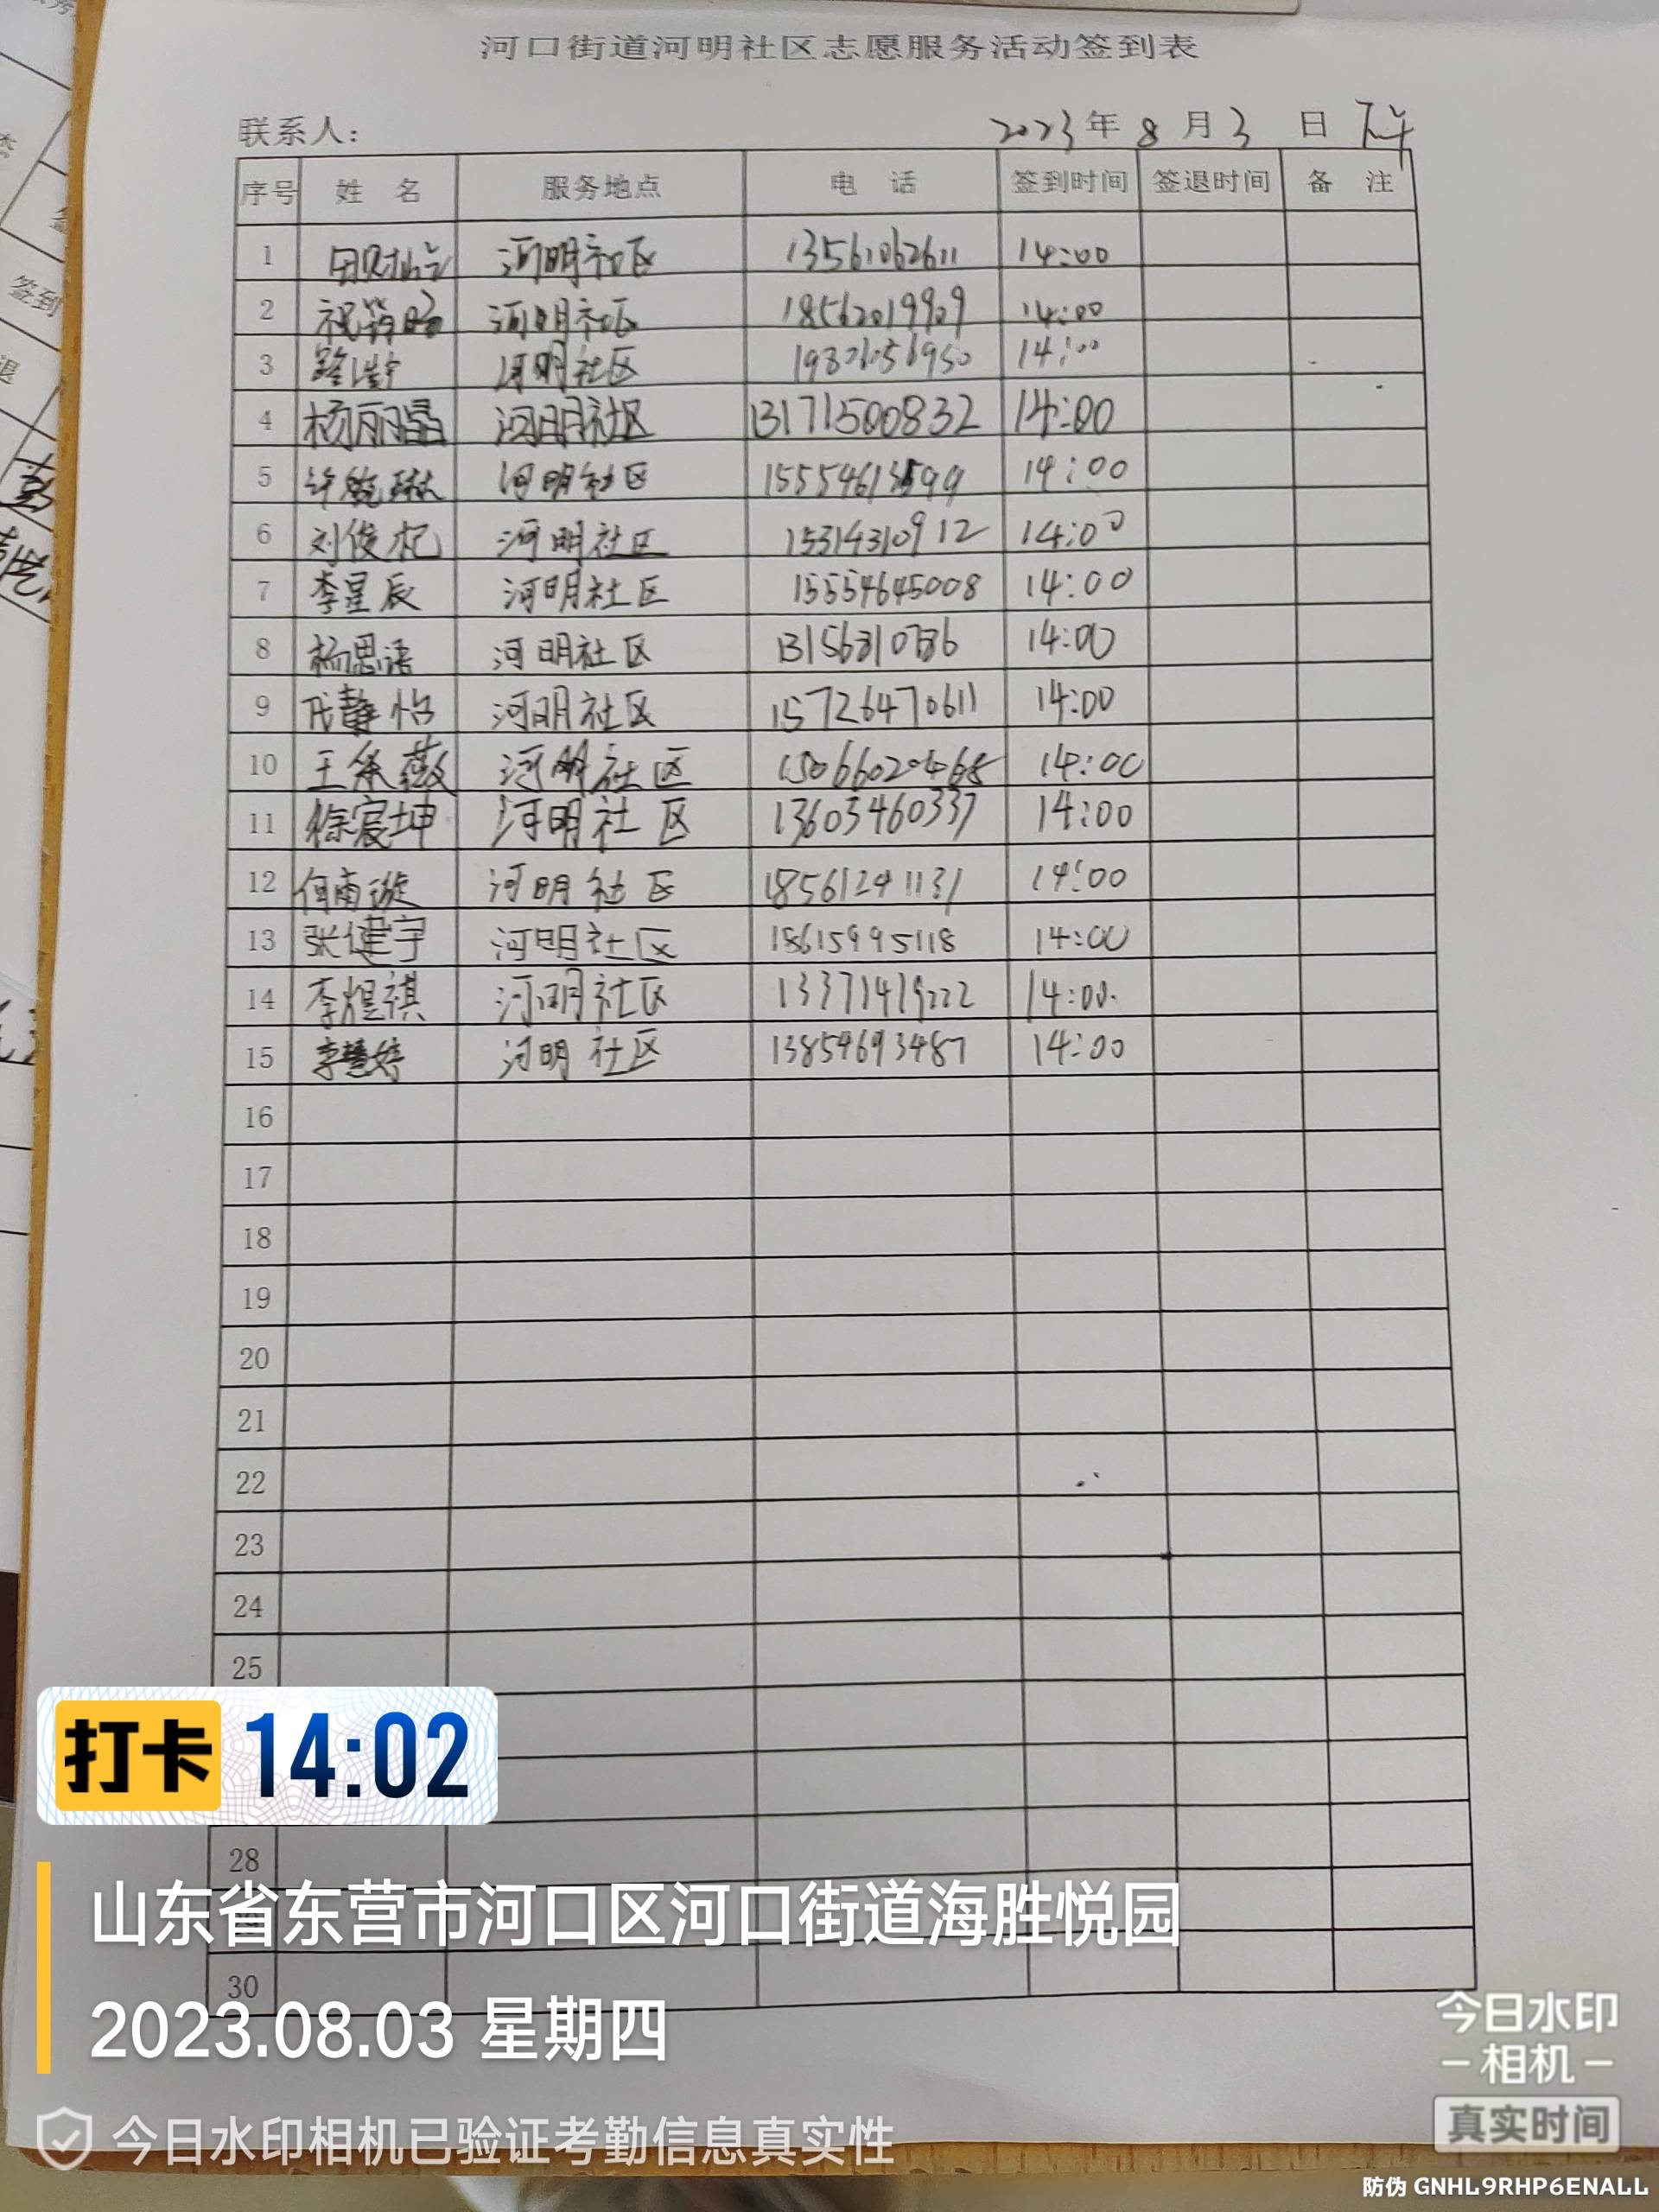 河口街道河明社区志愿服务活动签到表
联系人: 2023年8月3日 下午
序号 姓名 服务地点 电话 签到时间 签退时间 备注
1 河明社区 13561062611 14:00
2 河明社区 18562019909 14:00
3 路浩宇 河明社区 14:00
4 杨丽晶 河明社区 13171500832 14:00
5 河明社区 14:00
6 刘俊杞 河明社区 15314310912 14:00
7 李星辰 河明社区 15554645008 14:00
8 杨思语 河明社区 14:00
9 代静怡 河明社区 15726470611 14:00
10 河明社区 14:00
11 徐宸坤 河明社区 13603460337 14:00
12 何南璇 河明社区 18561241131 14:00
13 张健宇 河明社区 18615995118 14:00
14 李煜祺 河明社区 13371419222 14:00
15 李慧婷 河明社区 13854693487 14:00
16
17
18
19
20
21
22
23
24
25
28
30
打卡 14:02
山东省东营市河口区河口街道海胜悦园
2023.08.03 星期四
今日水印相机已验证考勤信息真实性
今日水印
相机
真实时间
防伪 GNHL9RHP6ENALL